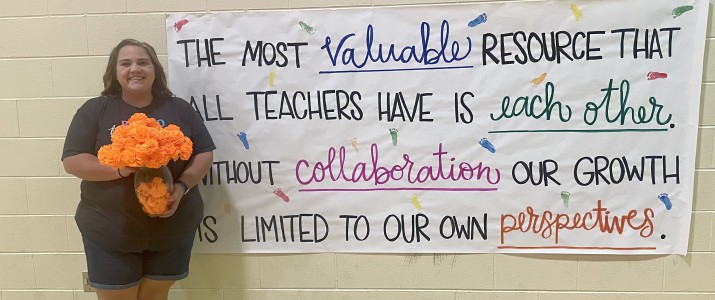 THE MOST valuable RESOURCE THAT
ALL TEACHERS HAVE IS each other.
WITHOUT collaboration OUR GROWTH
IS LIMITED TO OUR OWN perspectives.